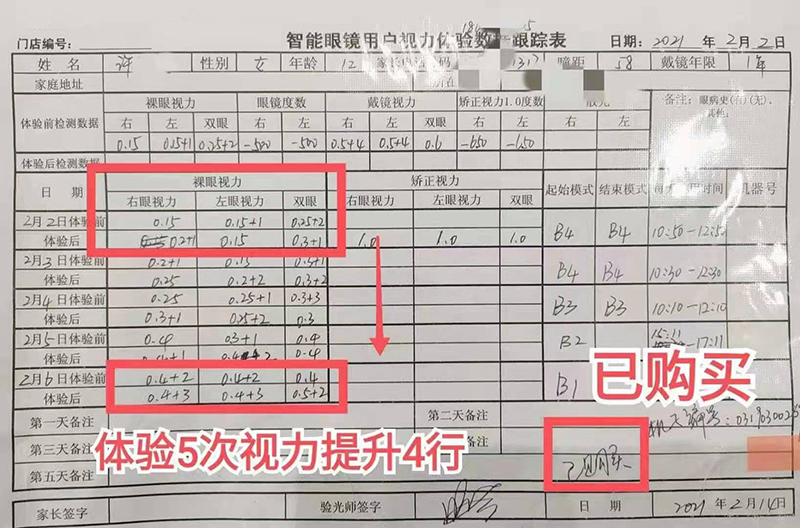 智能眼镜用户视力体验数 跟踪表
门店编号: 日期: 2021 年 2 月 2 日
姓名 许 性别 女 年龄 12 瞳距 58 戴镜年限 1年
家庭地址
体验前检测数据 裸眼视力 眼镜度数 戴镜视力 矫正视力1.0度数 备注: 眼病史(有)(无),
右 左 双眼 右 左 右 左 双眼 右 左 右 左 其他:
0.15 0.15+1 0.25+2 -500 -500 0.5+4 0.5+4 0.6 -650 -650
体验后检测数据
日期 裸眼视力 矫正视力 起始模式 结束模式 时间 机器号
右眼视力 左眼视力 双眼 右眼视力 左眼视力 双眼
2月2日体验前 0.15 0.15+1 0.25+2 B4 B4 10:50-12:50
体验后 0.2+1 0.15 0.3+1 1.0 1.0 1.0
2月3日体验前 0.2+1 0.15 0.3+1 B4 B4 10:30-12:30
体验后 0.25 0.2+2 0.3+2
2月4日体验前 0.25 0.25+1 0.3+3 B3 B3 10:10-12:10
体验后 0.3+1 0.25+2 0.3
2月5日体验前 0.4 0.3+1 0.4 B2 15:11-17:11
体验后 0.4+1 0.4+2 0.4
2月6日体验前 0.4+2 0.4+2 0.4 B1
体验后 0.4+3 0.4+3 0.5+2
已购买
第一天备注 第二天备注
第三天备注 已购买
体验5次视力提升4行
第五天备注
家长签字 验光师签字 日期 2021 年 2 月 14 日